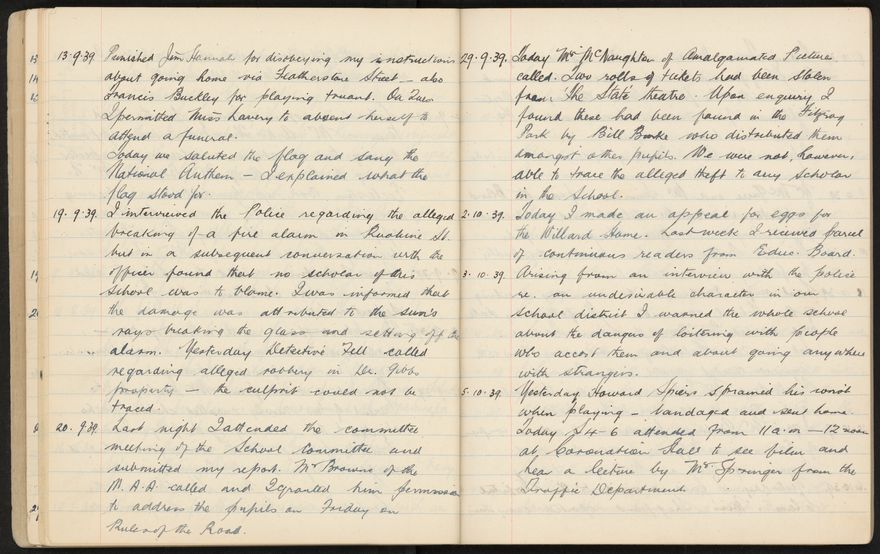 13·9·39. Punished Jim Hannah for disobeying my instructions
about going home via Featherstone Street – also
Francis Buckley for playing truant. On Tues
I permitted Miss Lavery to absent herself to
attend a funeral.
Today we saluted the flag and sang the
National Anthem – I explained what the
flag stood for.
19·9·39. I interviewed the Police regarding the alleged
breaking of a fire alarm in Ruahine St.
but in a subsequent conversation with the
officer found that no scholar of this
school was to blame. I was informed that
the damage was attributed to the sun's
rays breaking the glass and setting off the
alarm. Yesterday Detective Fell called
regarding alleged robbery in Dr. Gibbs
property – the culprit could not be
traced.
20·9·39. Last night I attended the committee
meeting of the School Committee and
submitted my report. Mr Browne of the
M.A.A called and I granted him permission
to address the pupils on Friday on
Rules of the Road.
29·9·39. Today Mr McNaughton of Amalgamated Picture
called. Two rolls of tickets had been stolen
from 'The State' theatre. Upon enquiry I
found these had been found in the Fitzroy
Park by Bill Burke who distributed them
amongst other pupils. We were not, however,
able to trace the alleged theft to any scholar
in the School.
2·10·39. Today I made an appeal for eggs for
the Willard Home. Last week I received parcel
of continuous readers from Educ. Board.
3·10·39. Arising from an interview with the police
re. an undesirable character in our
school district I warned the whole school
about the dangers of loitering with people
who accost them and about going anywhere
with strangers.
5·10·39. Yesterday Howard Spiers sprained his wrist
when playing – bandaged and sent home.
Today 4–6 attended from 11 a.m – 12 noon
at Coronation Hall to see film and
hear a lecture by Mr Springer from the
Traffic Department.